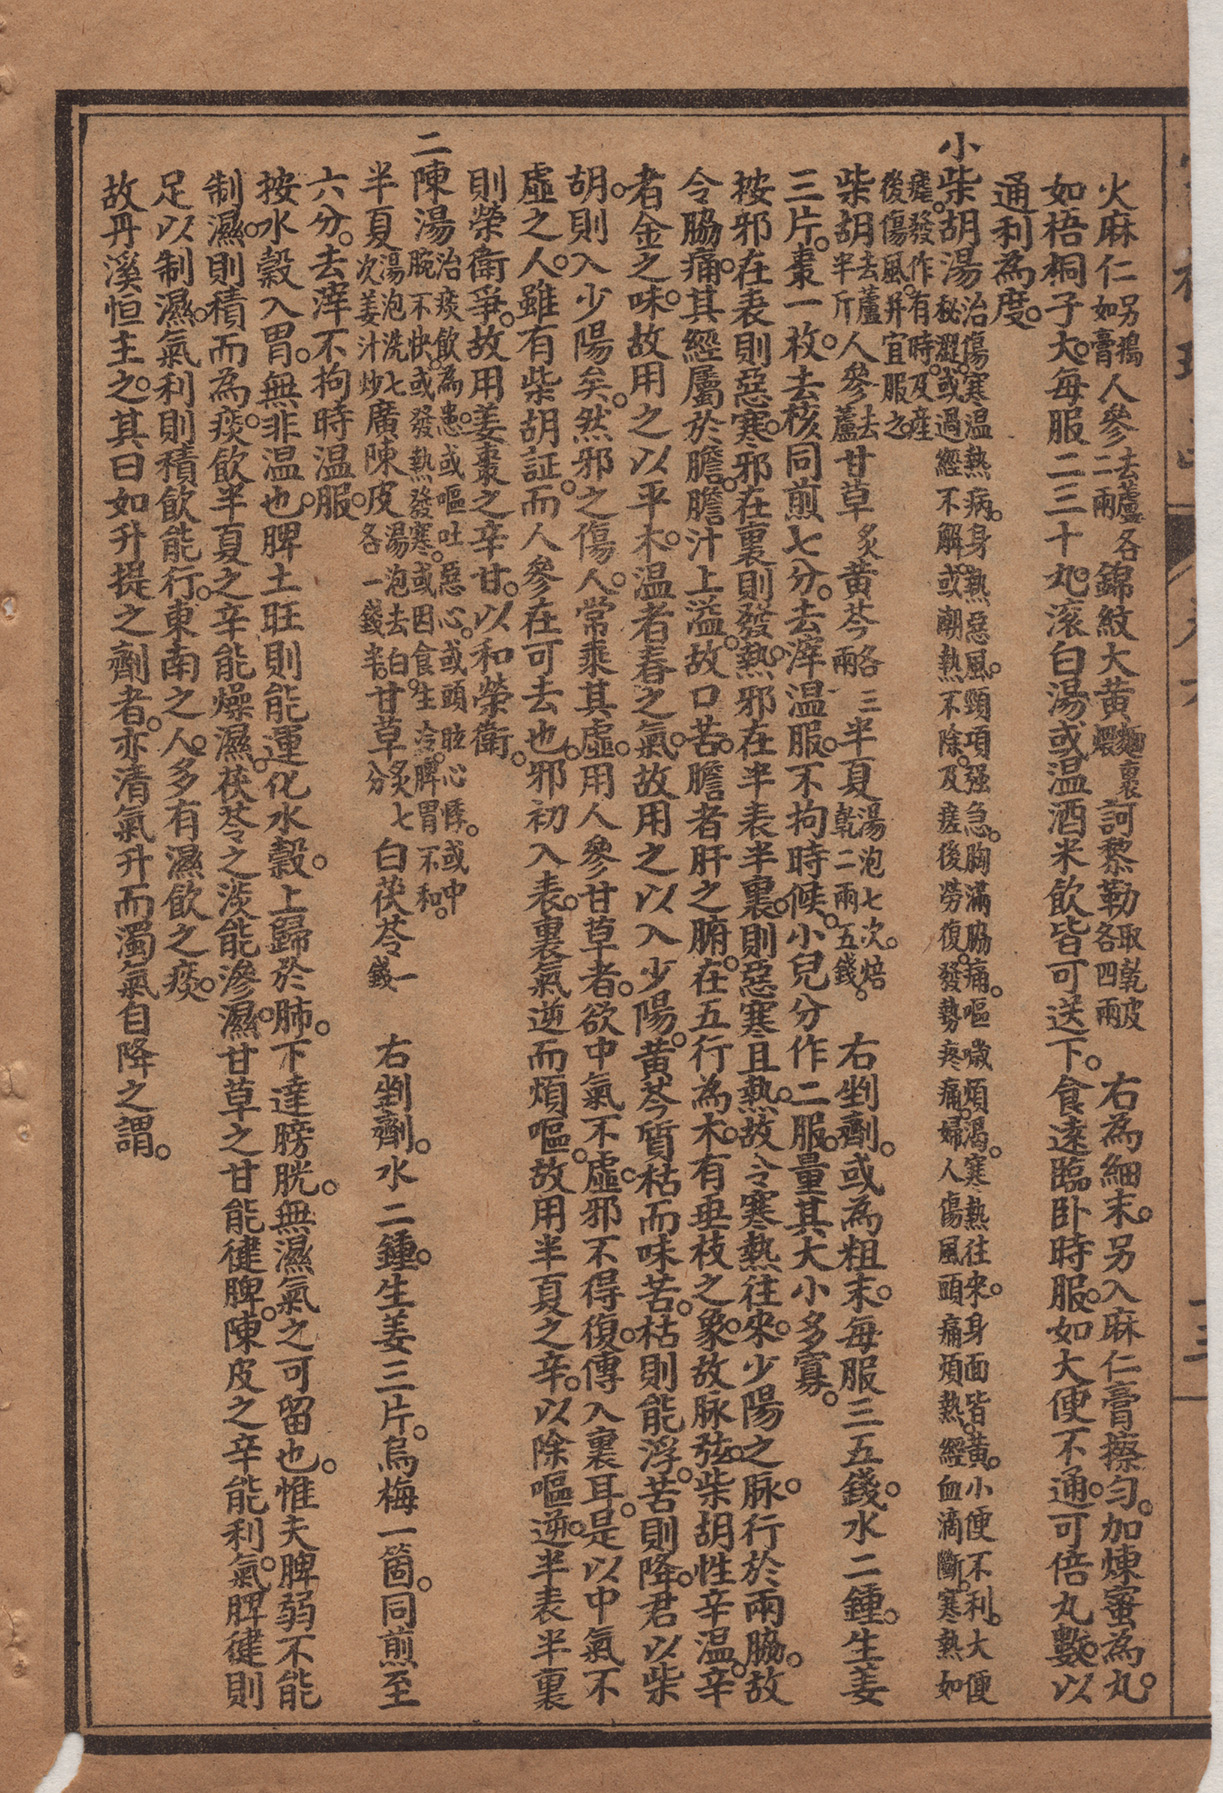 火麻仁另搗如膏人參去蘆各二兩錦紋大黃麵裹煨訶黎勒取乾皮各四兩 右為細末。另入麻仁膏擦勻。加煉蜜為丸。
如梧桐子大。每服二三十丸。滚白湯或温酒米飲皆可送下。食遠臨卧時服。如大便不通。可倍丸數。以
通利為度。
小柴胡湯治傷寒温熱病。身熱惡風。頸項强急。胸滿脇痛。嘔噦煩渴。寒熱往來。身面皆黃。小便不利。大便
秘澀。或過經不解。或潮熱不除。及瘥後勞復。發勢疼痛。婦人傷風頭痛煩熱。經血滴斷。寒熱如
瘧。發作有時。及産
後傷風。并宜服之。
柴胡去蘆半斤人參去蘆甘草炙黃芩各三兩半夏湯泡七次。焙乾二兩五錢。 右剉劑。或為粗末。每服三五錢。水二鍾。生姜
三片。棗一枚。去核同煎七分。去滓温服。不拘時候。小兒分作二服。量其大小多寡。
按邪在表則惡寒。邪在裏則發熱。邪在半表半裏。則惡寒且熱。故令寒熱往來。少陽之脉。行於兩脇。故
令脇痛。其經屬於膽。膽汁上溢。故口苦。膽者肝之腑。在五行為木。有垂枝之象。故脉弦。柴胡性辛温。辛
者金之味。故用之以平木。温者春之氣。故用之以入少陽。黃芩質枯而味苦。枯則能浮。苦則降。君以柴
胡。則入少陽矣。然邪之傷人。常乘其虛。用人參甘草者。欲中氣不虛。邪不得復。傳入裏耳。是以中氣不
虛之人。雖有柴胡証。而人參在可去也。邪初入表。裏氣逆而煩嘔。故用半夏之辛。以除嘔逆。半表半裏
則榮衛爭。故用姜棗之辛甘。以和榮衛。
二陳湯治痰飲為患。或嘔吐惡心。或頭眩心悸。或中
脘不快。或發熱發寒。或因食生冷。脾胃不和。
半夏湯泡洗七次姜汁炒廣陳皮湯泡去白。各一錢半。甘草炙七分白茯苓一錢 右剉劑。水二鍾。生姜三片。烏梅一箇。同煎至
六分。去滓不拘時温服。
按水穀入胃。無非温也。脾土旺則能運化水穀。上歸於肺。下達膀胱。無濕氣之可留也。惟夫脾弱不能
制濕。則積而為痰飲。半夏之辛能燥濕。茯苓之淡能滲濕。甘草之甘能健脾。陳皮之辛能利氣。脾健則
足以制濕。氣利則積飲能行。東南之人。多有濕飲之痰。
故丹溪恒主之。其曰如升提之劑者。亦清氣升而濁氣自降之謂。